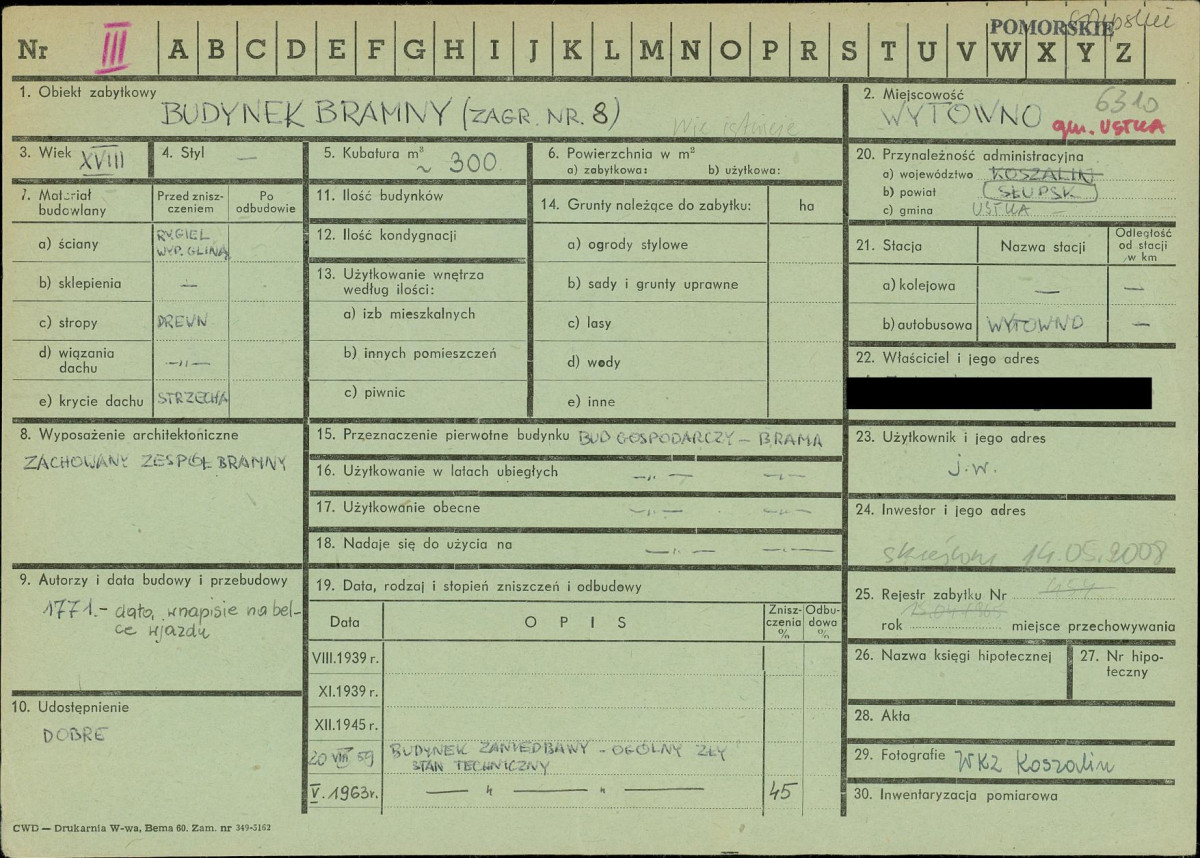 Nr III A B C D E F G H I J K L M N O P R S T U V W X Y Z
POMORSKIE
1. Obiekt zabytkowy
BUDYNEK BRAMNY (ZAGR. NR. 8)
nie istnieje
2. Miejscowość
WYTOWNO
6310
gm. USTKA
3. Wiek XVIII
4. Styl —
5. Kubatura m³
~ 300
6. Powierzchnia w m²
a) zabytkowa: b) użytkowa:
20. Przynależność administracyjna
a) województwo KOSZALIN
b) powiat SŁUPSK
c) gmina USTKA —
7. Materiał budowlany
Przed zniszczeniem
Po odbudowie
a) ściany RYGIEL WYP. GLINĄ
b) sklepienia —
c) stropy DREWN
d) wiązania dachu —„—
e) krycie dachu STRZECHA
11. Ilość budynków
12. Ilość kondygnacji
13. Użytkowanie wnętrza według ilości:
a) izb mieszkalnych
b) innych pomieszczeń
c) piwnic
14. Grunty należące do zabytku: ha
a) ogrody stylowe
b) sady i grunty uprawne
c) lasy
d) wody
e) inne
21. Stacja Nazwa stacji Odległość od stacji w km
a) kolejowa — —
b) autobusowa WYTOWNO —
22. Właściciel i jego adres
8. Wyposażenie architektoniczne
ZACHOWANY ZESPÓŁ BRAMNY
15. Przeznaczenie pierwotne budynku BUD GOSPODARCZY – BRAMA
16. Użytkowanie w latach ubiegłych —„— —„—
17. Użytkowanie obecne —„— —„—
18. Nadaje się do użycia na —„— —„—
23. Użytkownik i jego adres
j.w.
24. Inwestor i jego adres
skreślony 14.05.2008
9. Autorzy i data budowy i przebudowy
1771.- data w napisie na bel-
ce wjazdu
19. Data, rodzaj i stopień zniszczeń i odbudowy
Data OPIS Zniszczenia % Odbudowa %
VIII.1939 r.
XI.1939 r.
XII.1945 r.
20 VIII 59 BUDYNEK ZANIEDBANY – OGÓLNY ZŁY
STAN TECHNICZNY
V. 1963 r. — „ — „ — 45
25. Rejestr zabytku Nr 484
rok miejsce przechowywania
26. Nazwa księgi hipotecznej
27. Nr hipoteczny
10. Udostępnienie
DOBRE
28. Akta
29. Fotografie WKZ Koszalin
30. Inwentaryzacja pomiarowa
CWD — Drukarnia W-wa, Bema 60. Zam. nr 349-5162